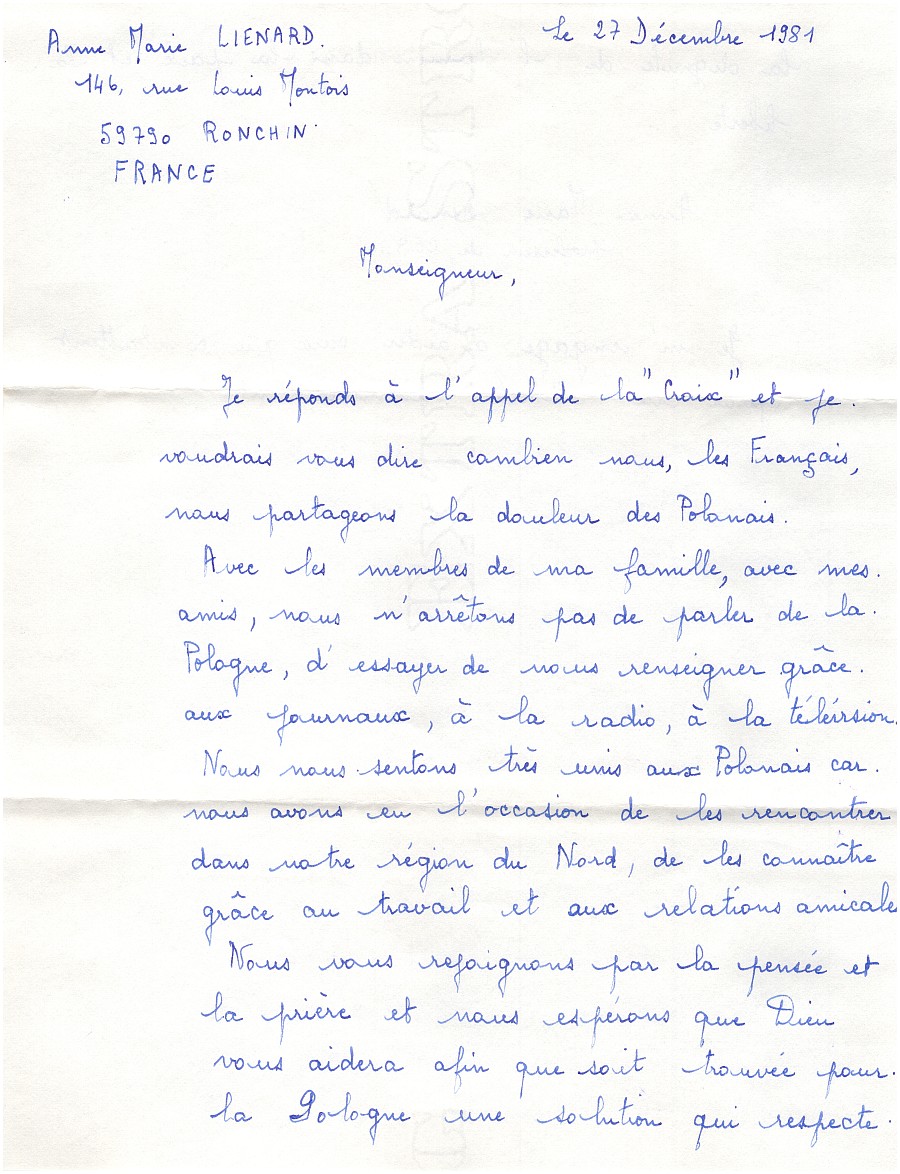 Anne Marie LIENARD.
Le 27 Décembre 1981
146, rue Louis Montois
59790 RONCHIN.
FRANCE
Monseigneur,
Je réponds à l'appel de la "Croix" et je.
voudrais vous dire combien nous, les Français,
nous partageons la douleur des Polonais.
Avec les membres de ma famille, avec mes.
amis, nous n'arrêtons pas de parler de la.
Pologne, d'essayer de nous renseigner grâce.
aux journaux, à la radio, à la télévision.
Nous nous sentons très unis aux Polonais car.
nous avons eu l'occasion de les rencontrer
dans notre région du Nord, de les connaître
grâce au travail et aux relations amicales
Nous vous rejoignons par la pensée et
la prière et nous espérons que Dieu
vous aidera afin que soit trouvée pour.
la Pologne une solution qui respecte.